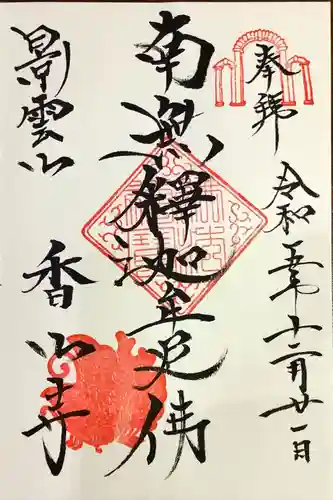 奉拝
令和五年十二月廿一日
南無釋迦牟尼佛
景雲山
香山寺